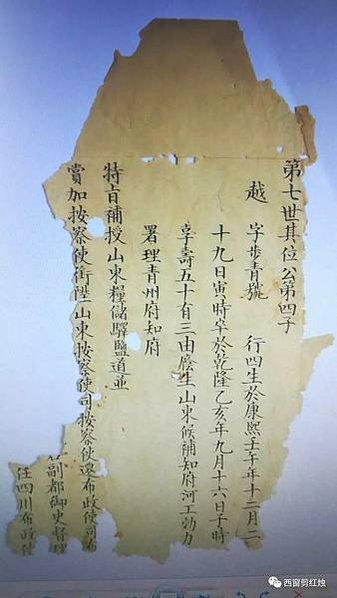 第七世其位公第四子
越 字步青號 行四生於康熙壬午年十二月二
十九日寅時卒於乾隆乙亥年九月十六日子時
享壽五十有三由廕生山東候補知府河工効力
署理青州府知府
特旨補授山東糧儲驛鹽道並
賞加按察使銜陞山東按察使司按察使遷布政使司布
副都御史督理
任四川布政使
西窗剪红烛